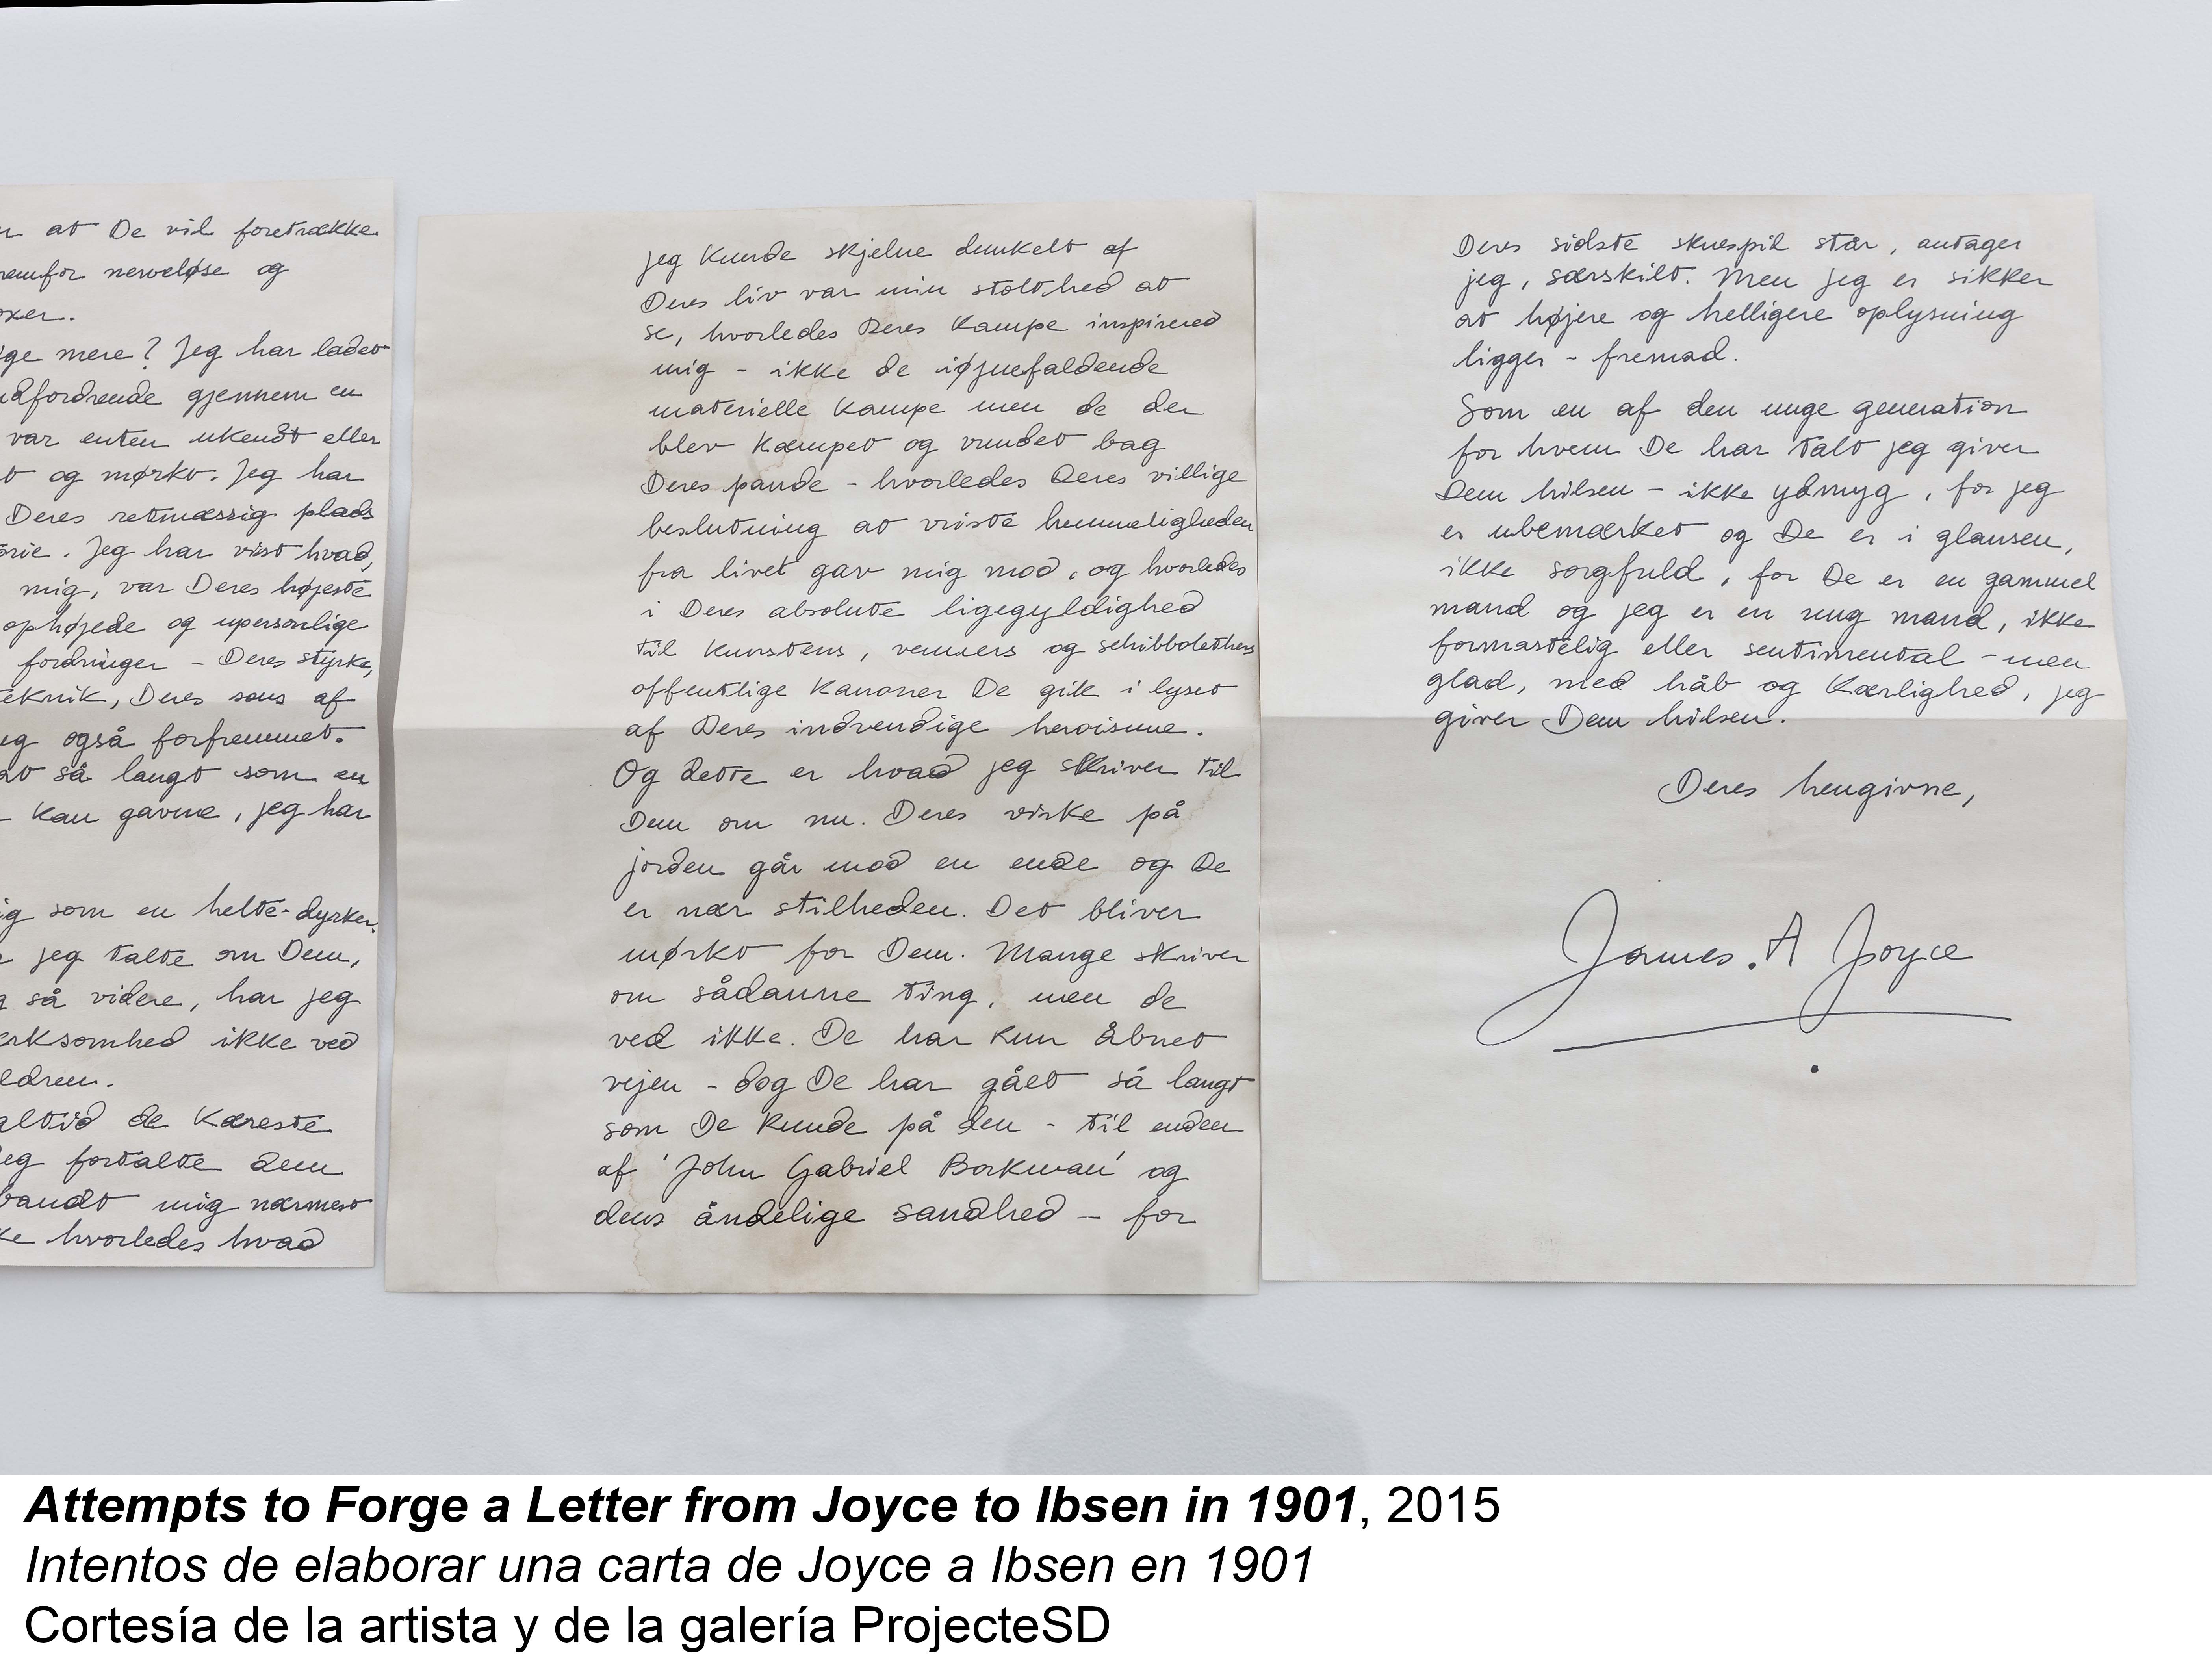 at De vil foretrække
nerveløse og
mere? Jeg har ladet
gjennem en
var enten ukendt eller
og mørkt. Jeg har
Deres retmæssig plads
Jeg har vist hvad,
mig, var Deres højeste
ophøjede og upersonlige
fordringer – Deres styrke,
teknik, Deres sans af
også forfremmet.
så langt som en
kan gavne, jeg har
som en helte-dyrker.
jeg talte om Dem,
så videre, har jeg
ikke ved
altid de kæreste
jeg fortalte dem
bandt mig nærmest
hvorledes hvad
jeg kunde skjelne dunkelt af
Deres liv var min stolthed at
se, hvorledes Deres kampe inspirered
mig – ikke de iøjnefaldende
materielle kampe men de der
blev kæmpet og vundet bag
Deres pande – hvorledes Deres villige
beslutning at vriste hemmeligheden
fra livet gav mig mod, og hvorledes
i Deres absolute ligegyldighed
til kunstens, venners og schibbolethers
offentlige kanoner De gik i lyset
af Deres indvendige heroisme.
Og dette er hvad jeg skriver til
Dem om nu. Deres virke på
jorden går mod en ende og De
er nær stilheden. Det bliver
mørkt for Dem. Mange skriver
om sådanne ting, men de
ved ikke. De har kun åbnet
vejen – dog De har gået så langt
som De kunde på den – til enden
af 'John Gabriel Borkman' og
dens åndelige sandhed – for
Deres sidste skuespil står, antager
jeg, særskilt. Men jeg er sikker
at højere og helligere oplysning
ligger – fremad.
Som en af den unge generation
for hvem De har talt jeg giver
Dem hilsen – ikke ydmyg, for jeg
er ubemærket og De er i glansen,
ikke sorgfuld, for De er en gammel
mand og jeg er en ung mand, ikke
formastelig eller sentimental – men
glad, med håb og kærlighed, jeg
giver Dem hilsen.
Deres hengivne,
James. A Joyce
Attempts to Forge a Letter from Joyce to Ibsen in 1901, 2015
Intentos de elaborar una carta de Joyce a Ibsen en 1901
Cortesía de la artista y de la galería ProjecteSD